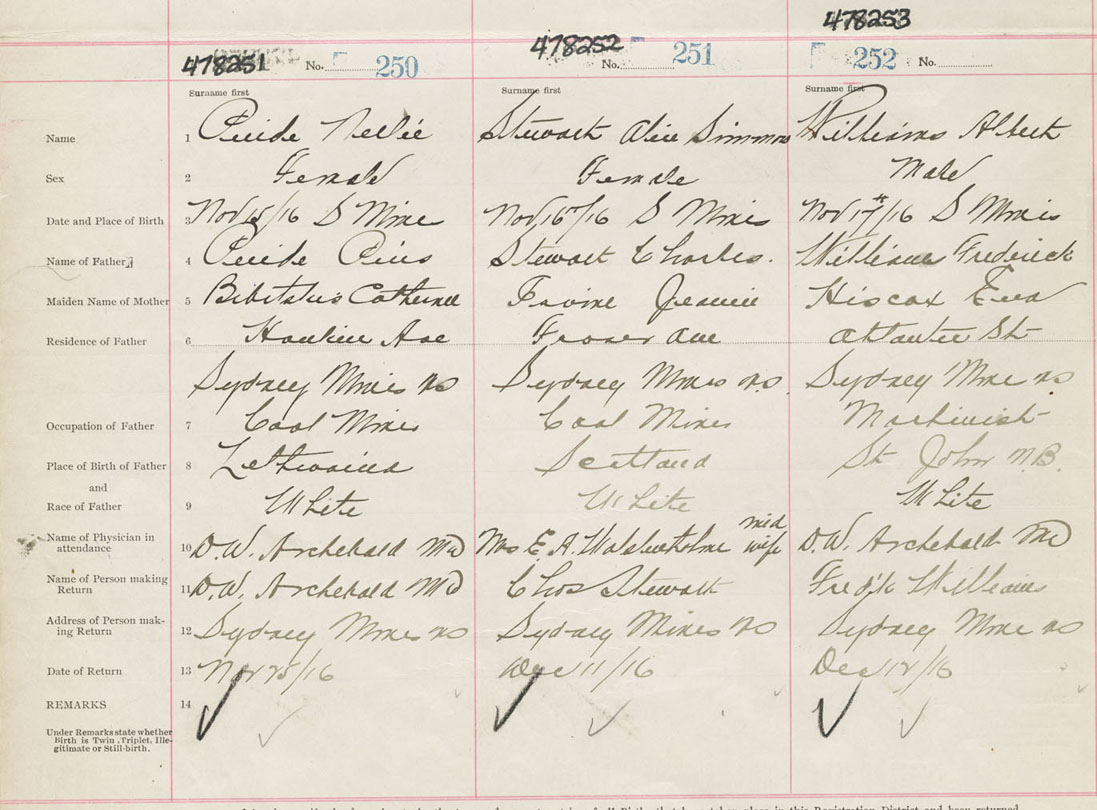 478253
478251 No. 250
478252 No. 251
252 No.
Surname first Surname first Surname first
Name 1 Nellie Stewart Alice Simmons Williams Albert
Sex 2 Female Female Male
Date and Place of Birth 3 Nov 15/16 S Mines Nov 16/16 S Mines Nov 17/16 S Mines
Name of Father 4 Pius Stewart Charles. Williams Frederick
Maiden Name of Mother 5 Catherine Jeannie Hiscox Eva
Residence of Father 6 Ave Fraser Ave Atlantic St
Sydney Mines NS Sydney Mines NS Sydney Mine NS
Occupation of Father 7 Coal Miner Coal Miner Machinist
Place of Birth of Father 8 Scotland St John N.B.
and
Race of Father 9 White White White
Name of Physician in mid
attendance 10 D.W. Archibald MD Mrs E. A. Wolstenholme wife D.W. Archibald MD
Name of Person making
Return 11 D.W. Archibald MD Chas Stewart Fred'k Williams
Address of Person mak-
ing Return 12 Sydney Mines NS Sydney Mines NS Sydney Mine NS
Date of Return 13 Nov 25/16 Dec 11/16 Dec 12/16
REMARKS 14
Under Remarks state whether
Birth is Twin, Triplet, Ille-
gitimate or Still-birth.